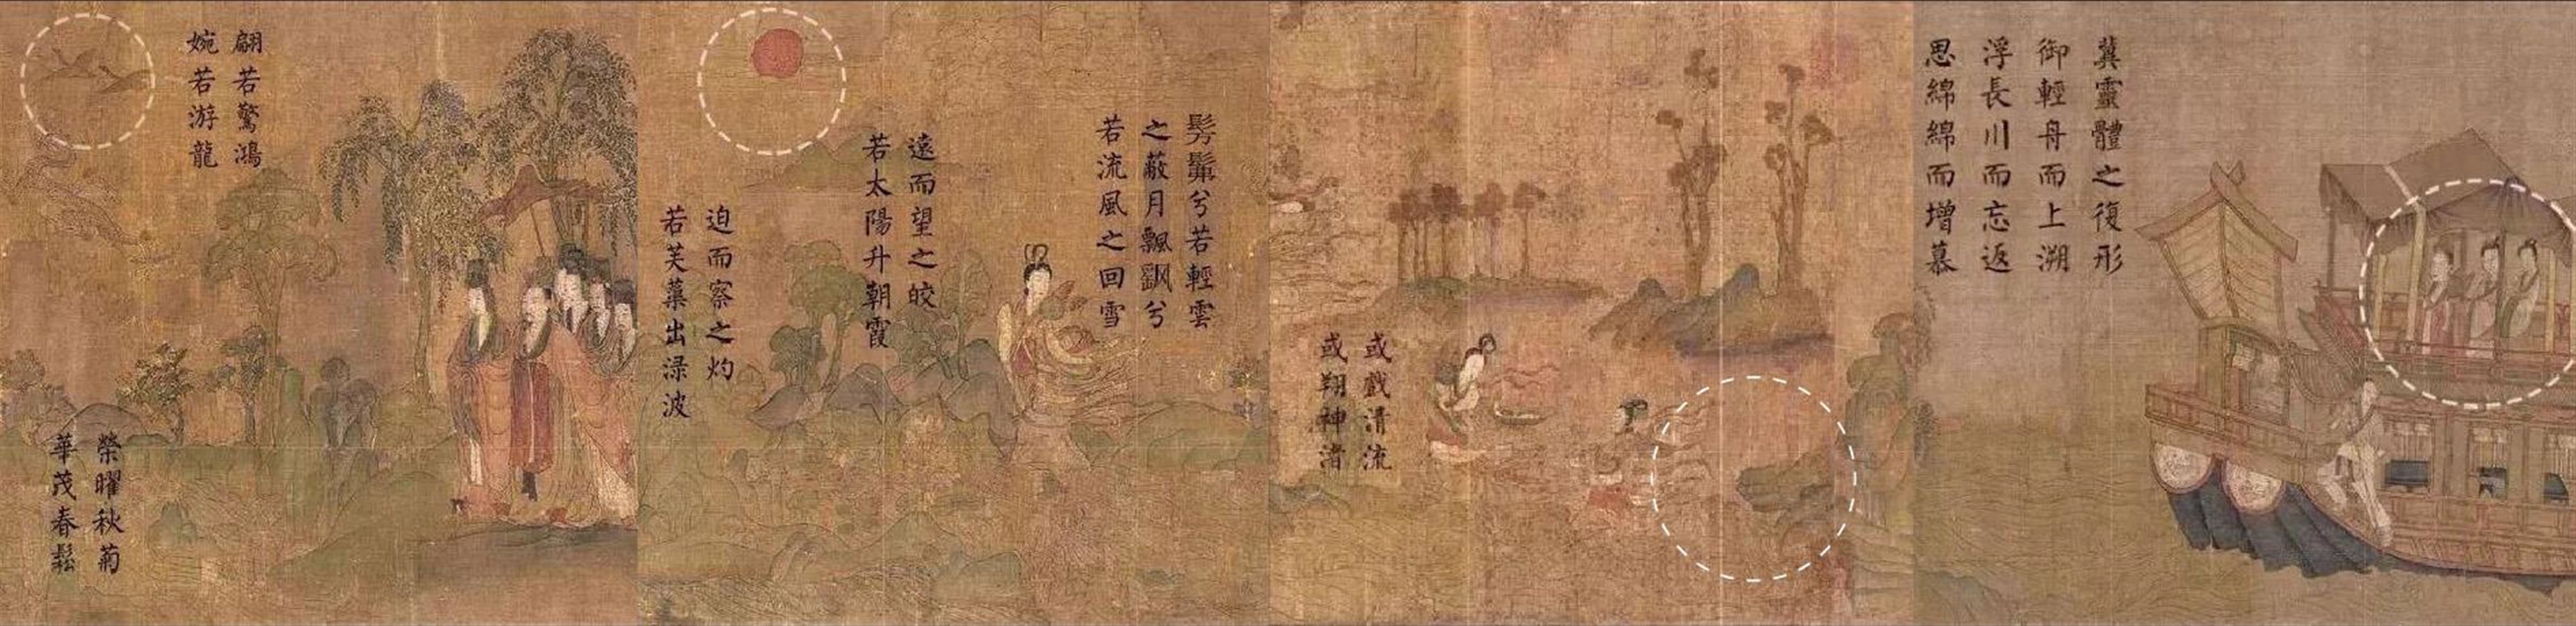 翩若驚鴻
婉若游龍
榮曜秋菊
華茂春鬆
髣髴兮若輕雲
之蔽月飄飖兮
若流風之回雪
遠而望之皎
若太陽升朝霞
迫而察之灼
若芙蕖出淥波
或戲清流
或翔神渚
冀靈體之復形
御輕舟而上溯
浮長川而忘返
思綿綿而增慕